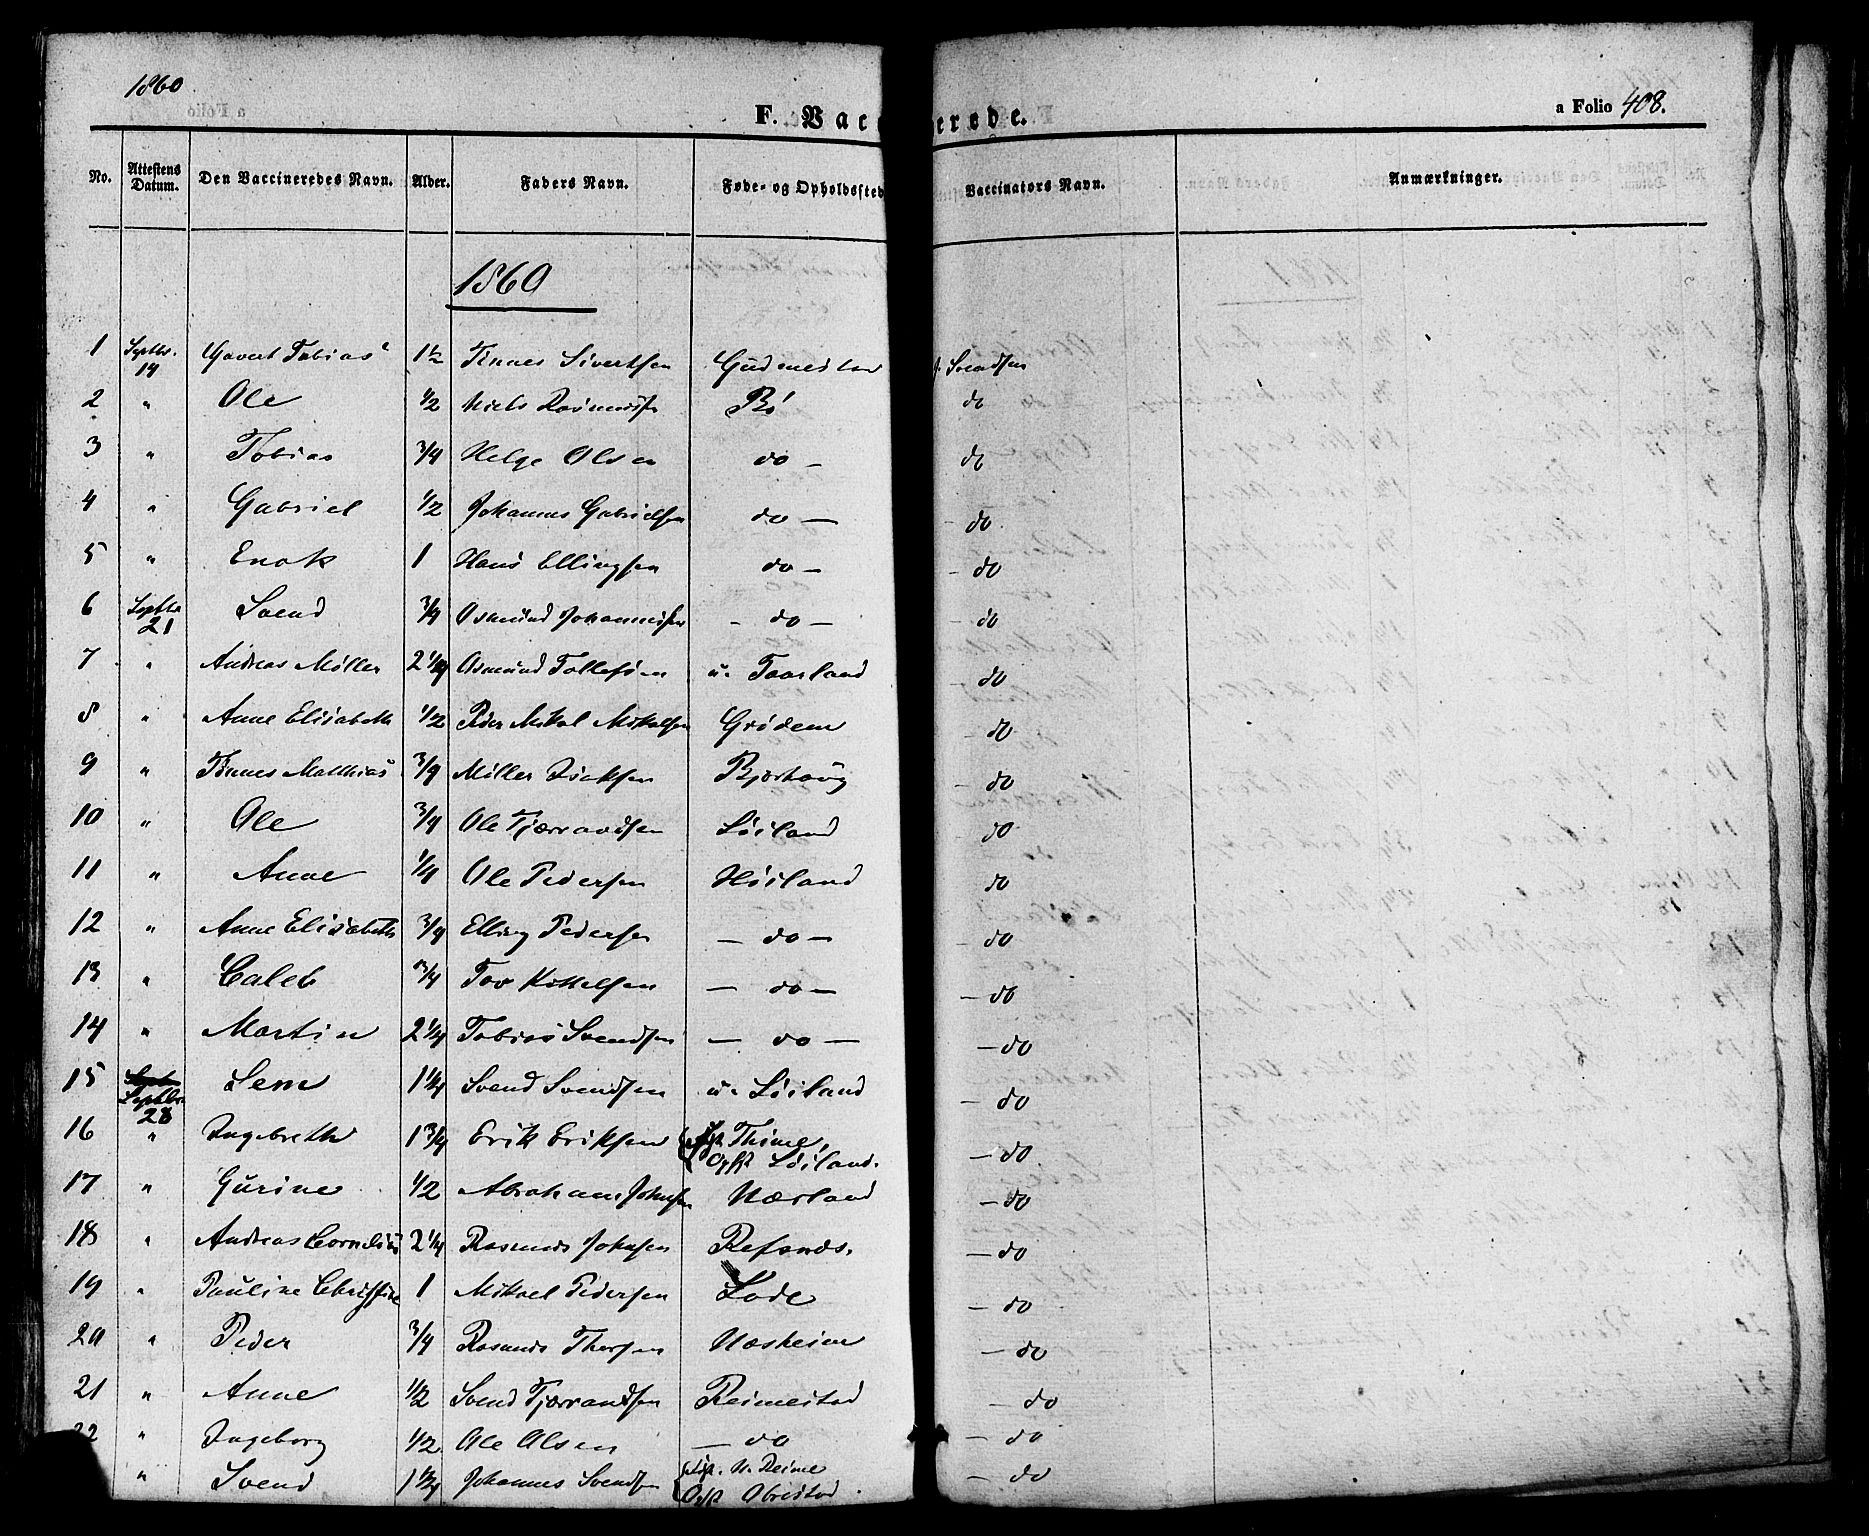 1860
F. Vac erede.
a Folio 408.
No. Attestens Datum. Den Vaccineredes Navn. Alder. Faders Navn. Føde- og Opholdssted Vaccinators Navn. Anmærkninger.
1860
1 Septbr. 14 Govert Tobias 1 1/2 Tønnes Sivertsen Gudmestad Svendsen
2 " Ole 1/2 Niels Rasmussen Bø do
3 " Tobias 3/4 Helge Olsen do — do
4 " Gabriel 1/2 Johannes Gabrielsen do — — do
5 " Enok 1 Hans Ellingsen do — — do
6 Septbr 21 Svend 3/4 Osmund Johannessen — do — — do
7 " Andreas Møller 2 1/4 Osmund Tollefsen u. Taarland — do
8 " Anne Elisabeth 1/2 Peder Mikal Mikalsen Grødem — do
9 " Tønnes Matthias 3/4 Møller Isaksen Bjorhaug — do
10 " Ole 3/4 Ole Tjærrandsen Løiland — do
11 " Anne 1/4 Ole Pedersen Høiland do
12 " Anne Elisabeth 3/4 Elling Pedersen — do — — do
13 " Caleb 3/4 Tov Kittelsen — do — — do
14 " Martin 2 1/4 Tobias Svendsen — do — — do
15 Septbr. 28 Sem 1 1/4 Svend Svendsen u. Løiland — do
16 " Ingebreth 1 3/4 Erik Eriksen Thime, — do
Opst Løiland.
17 " Gurine 1/2 Abraham Johnsen Nærland — do
18 " Andreas Cornelius 2 1/4 Rasmus Johnsen Refsnæs. — do
19 " Pauline Christine 1 Mikael Pedersen Lode — do
20 " Peder 3/4 Rasmus Thorsen Næsheim — do
21 " Anne 1/2 Svend Tjærrandsen Reimestad — do
22 " Ingeborg 1/2 Ole Olsen — do — do
" Svend 1 1/4 Johannes Svendsen N. Reime — do
Opst Obrestad.